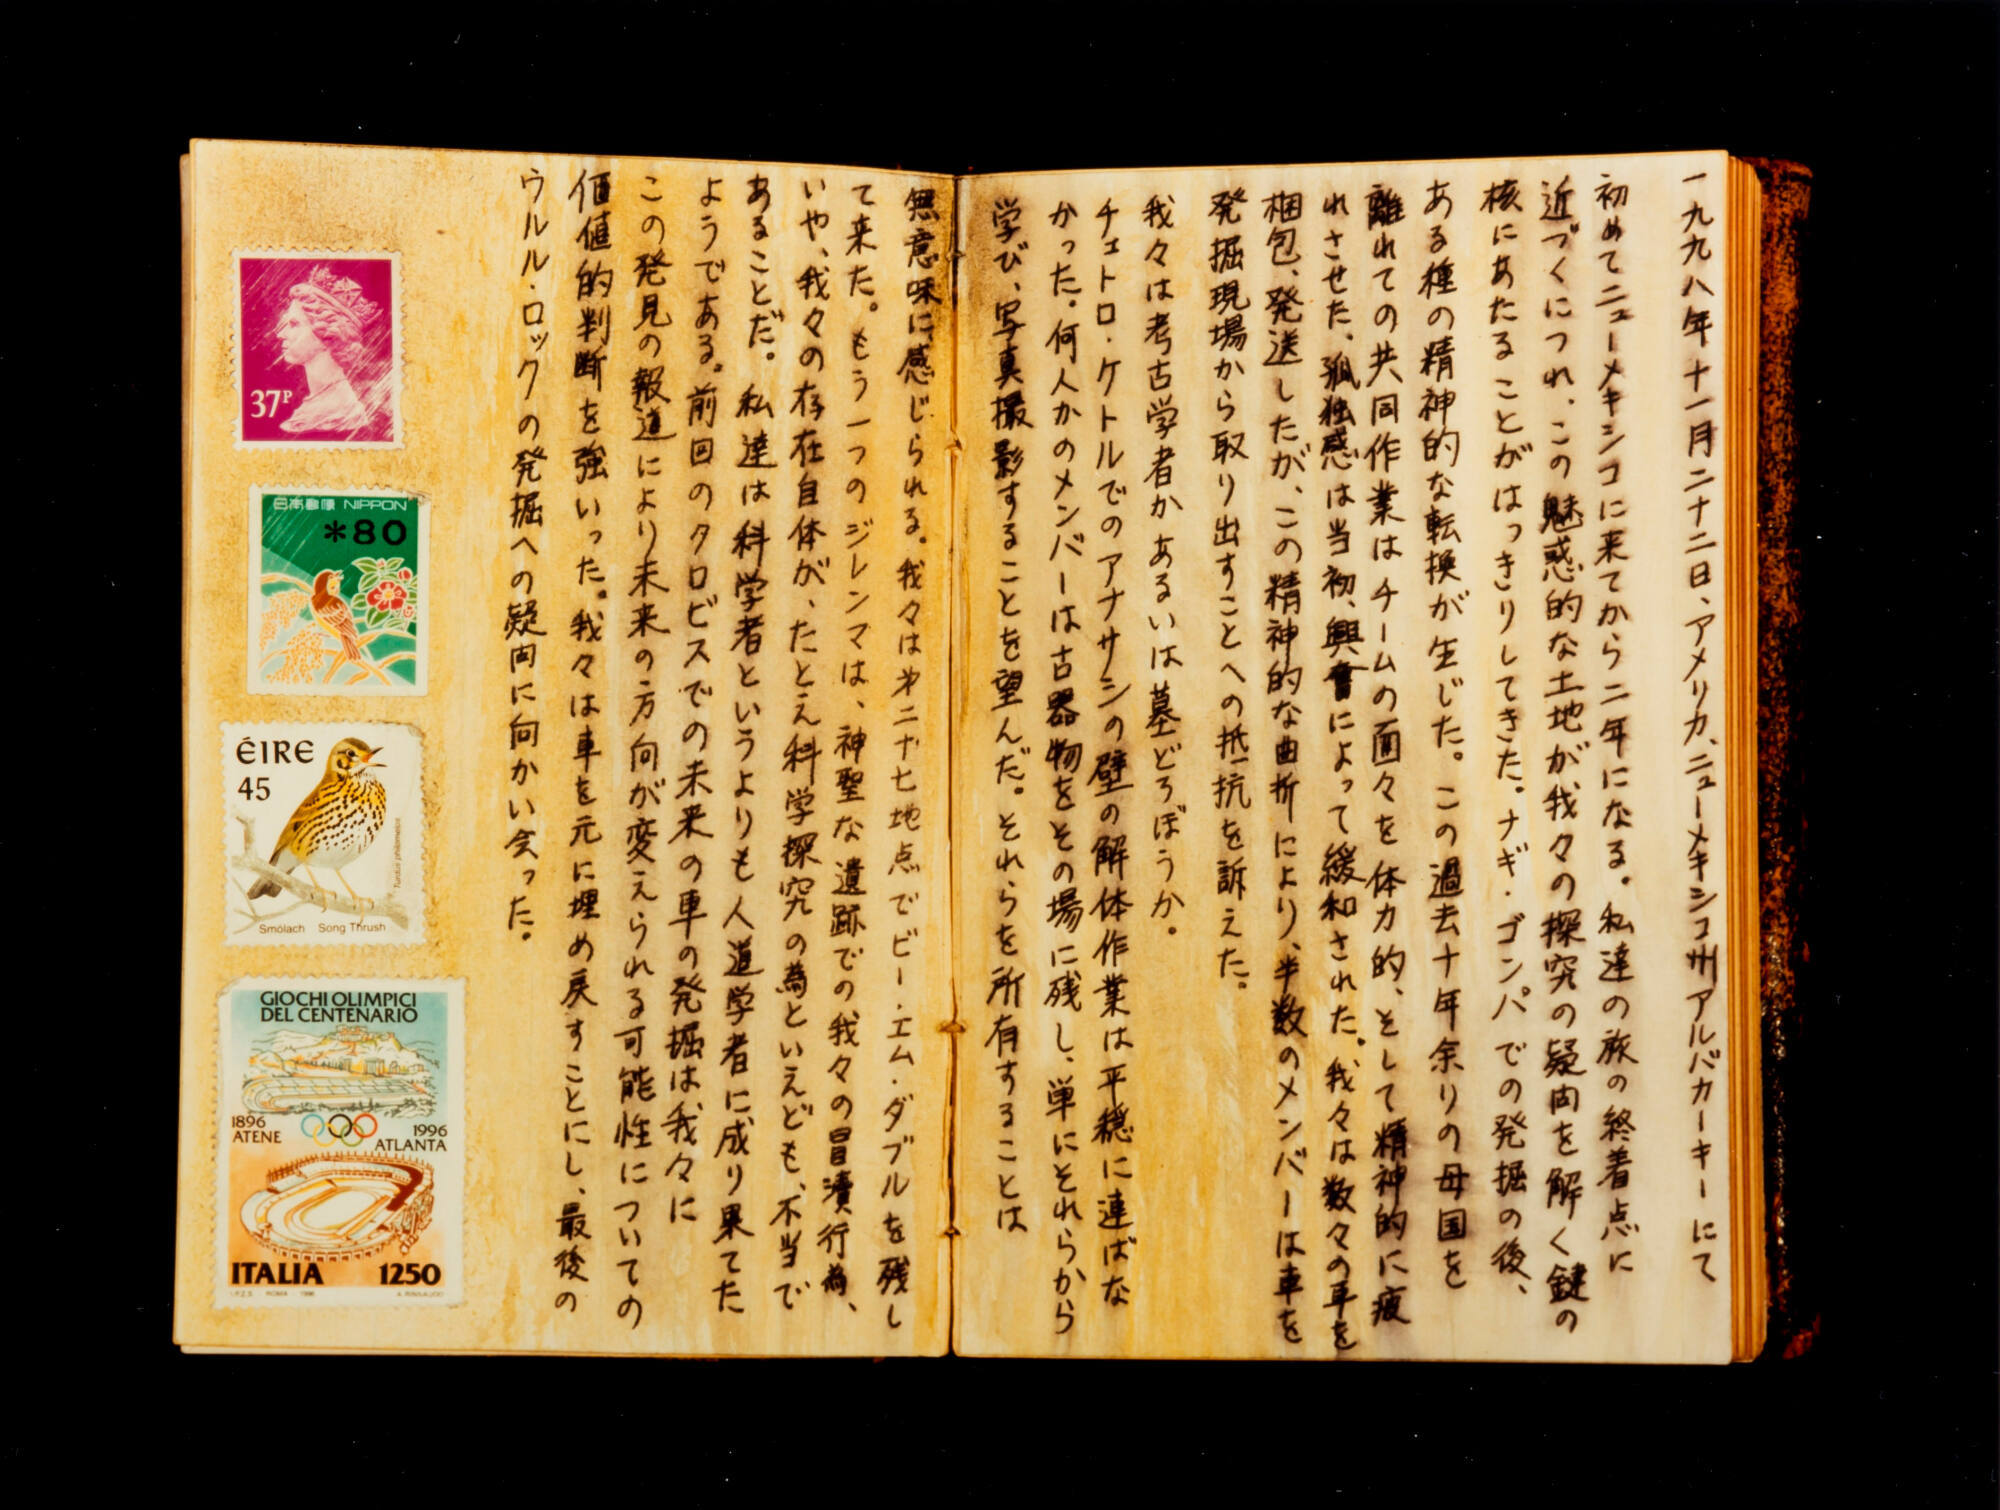 一九九八年十一月二十二日、アメリカ、ニューメキシコ州アルバカーキーにて
初めてニューメキシコに来てから二年になる。私達の旅の終着点に
近づくにつれ、この魅惑的な土地が、我々の探究の疑問を解く鍵の
核にあたることがはっきりしてきた。ナギ・ゴンパでの発掘の後、
ある種の精神的な転換が生じた。この過去十年余りの母国を
離れての共同作業はチームの面々を体力的、そして精神的に疲
れさせた。孤独感は当初、興奮によって緩和された。我々は数々の車を
梱包、発送したが、この精神的な曲折により、半数のメンバーは車を
発掘現場から取り出すことへの抵抗を訴えた。
我々は考古学者かあるいは墓どろぼうか。
チェトロ・ケトルでのアナサシの壁の解体作業は平穏に運ばな
かった。何人かのメンバーは古器物をその場に残し、単にそれらから
学び、写真撮影することを望んだ。それらを所有することは
無意味に感じられる。我々は第二十七地点でビー・エム・ダブルを残し
て来た。もう一つのジレンマは、神聖な遺跡での我々の冒瀆行為、
いや、我々の存在自体が、たとえ科学探究の為といえども、不当で
あることだ。私達は科学者というよりも人道学者に成り果てた
ようである。前回のタロビスでの未来の車の発掘は我々に
この発見の報道により未来の方向が変えられる可能性についての
価値的判断を強いった。我々は車を元に埋め戻すことにし、最後の
ウルル・ロックの発掘への疑問に向かい会った。
37P
日本郵便 NIPPON
*80
ÉIRE
45
Turdus philomelos
Smólach Song Thrush
GIOCHI OLIMPICI
DEL CENTENARIO
1896
ATENE
1996
ATLANTA
ITALIA 1250
I.P.Z.S. ROMA - 1996 A. RINSAUDO